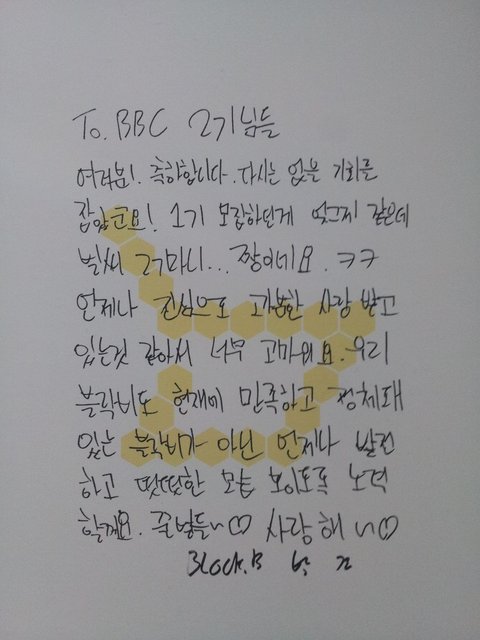 To. BBC 2기님들
여러분! 축하합니다. 다시는 없을 기회를
잡았군요! 1기 모집하던게 엊그제 같은데
벌써 2기라니... 짱이네요. ㅋㅋ
언제나 진심으로 과분한 사랑 받고
있는것 같아서 너무 고마워요. 우리
블락비도 현재에 만족하고 정체돼
있는 블락비가 아닌 언제나 발전
하고 떳떳한 모습 보이도록 노력
할께요. 꿀벌들~♡ 사랑해~♡
Block.B 박 경